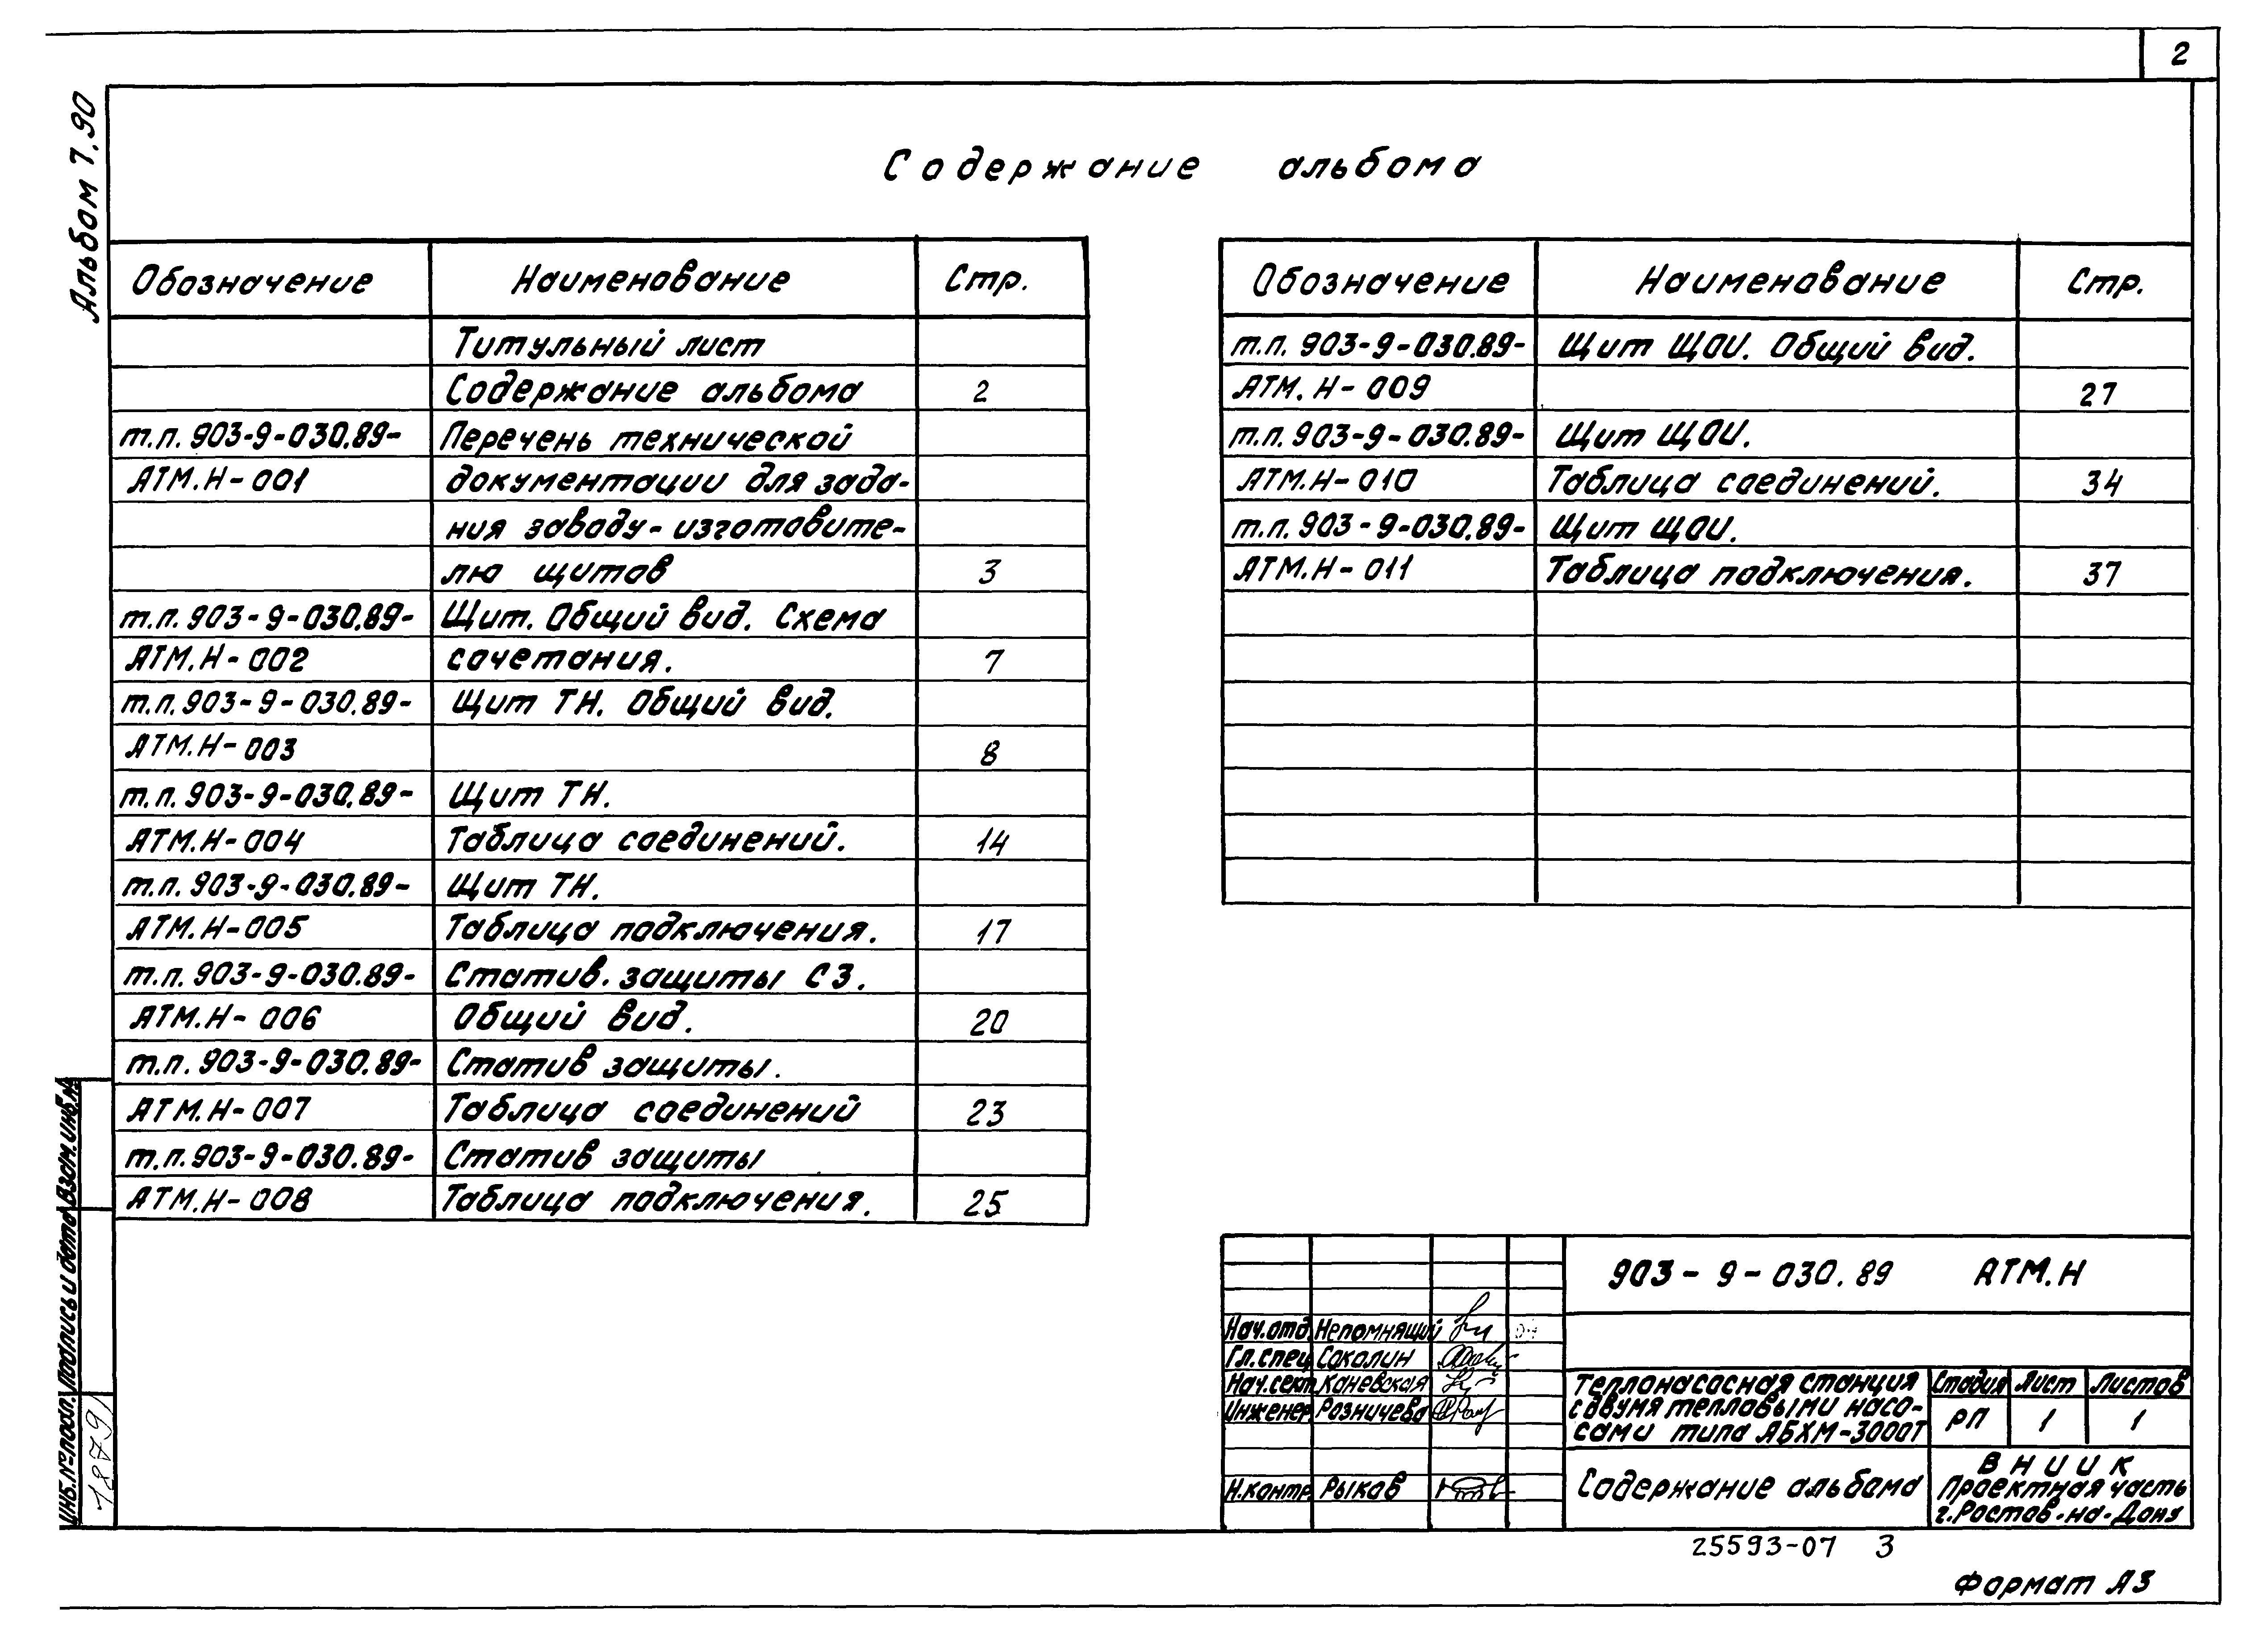 2
Альбом 7.90
Содержание альбома
Обозначение Наименование Стр.
Титульный лист
Содержание альбома 2
т.п. 903-9-030.89- Перечень технической
АТМ.Н-001 документации для зада-
ния заводу-изготовите-
лю щитов 3
т.п. 903-9-030.89- Щит. Общий вид. Схема
АТМ.Н-002 сочетания. 7
т.п. 903-9-030.89- Щит ТН. Общий вид.
АТМ.Н-003 8
т.п. 903-9-030.89- Щит ТН.
АТМ.Н-004 Таблица соединений. 14
т.п. 903-9-030.89- Щит ТН.
АТМ.Н-005 Таблица подключения. 17
т.п. 903-9-030.89- Статив. защиты СЗ.
АТМ.Н-006 Общий вид. 20
т.п. 903-9-030.89- Статив защиты.
АТМ.Н-007 Таблица соединений 23
т.п. 903-9-030.89- Статив защиты
АТМ.Н-008 Таблица подключения. 25
Обозначение Наименование Стр.
т.п. 903-9-030.89- Щит ЩОИ. Общий вид.
АТМ.Н-009 27
т.п. 903-9-030.89- Щит ЩОИ.
АТМ.Н-010 Таблица соединений. 34
т.п. 903-9-030.89- Щит ЩОИ.
АТМ.Н-011 Таблица подключения. 37
903-9-030.89 АТМ.Н
Нач.отд. Непомнящий
Гл.спец Соколин
Нач.сект. Каневская
Инженер Розничева
Н.контр. Рыков
Теплонасосная станция
с двумя тепловыми насо-
сами типа АБХМ-3000Т
Стадия Лист Листов
РП 1 1
Содержание альбома
ВНИИК
Проектная часть
г.Ростов-на-Дону
Инв.№подл. Подпись и дата Взам.инв.№
18791
25593-07 3
Формат А3